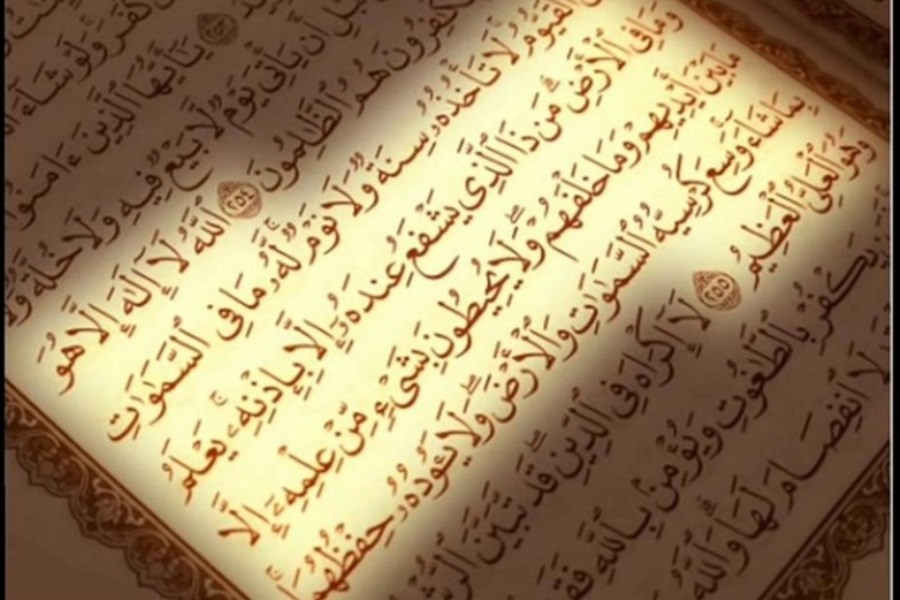 كَفَرَ وَلَوْ شَآءَ
﴿٢٥٣﴾ يَٰٓأَيُّهَا ٱلَّذِينَ ءَامَنُوٓا۟
قَبْلِ أَن يَأْتِىَ يَوْمٌ لَّا بَيْعٌ فِيهِ وَلَا خُلَّةٌ
هُمُ ٱلظَّٰلِمُونَ ﴿٢٥٤﴾ ٱللَّهُ لَآ إِلَٰهَ إِلَّا هُوَ
ٱلْقَيُّومُ لَا تَأْخُذُهُۥ سِنَةٌ وَلَا نَوْمٌ لَّهُۥ مَا فِى ٱلسَّمَٰوَٰتِ
وَمَا فِى ٱلْأَرْضِ مَن ذَا ٱلَّذِى يَشْفَعُ عِندَهُۥٓ إِلَّا بِإِذْنِهِۦ يَعْلَمُ
مَا بَيْنَ أَيْدِيهِمْ وَمَا خَلْفَهُمْ وَلَا يُحِيطُونَ بِشَىْءٍ مِّنْ عِلْمِهِۦٓ إِلَّا
بِمَا شَآءَ وَسِعَ كُرْسِيُّهُ ٱلسَّمَٰوَٰتِ وَٱلْأَرْضَ وَلَا يَـُٔودُهُۥ حِفْظُهُمَا
وَهُوَ ٱلْعَلِىُّ ٱلْعَظِيمُ ﴿٢٥٥﴾ لَآ إِكْرَاهَ فِى ٱلدِّينِ قَد تَّبَيَّنَ
يَكْفُرْ بِٱلطَّٰغُوتِ وَيُؤْمِنۢ بِٱللَّهِ فَقَدِ
لَا ٱنفِصَامَ لَهَا وَٱللَّهُ